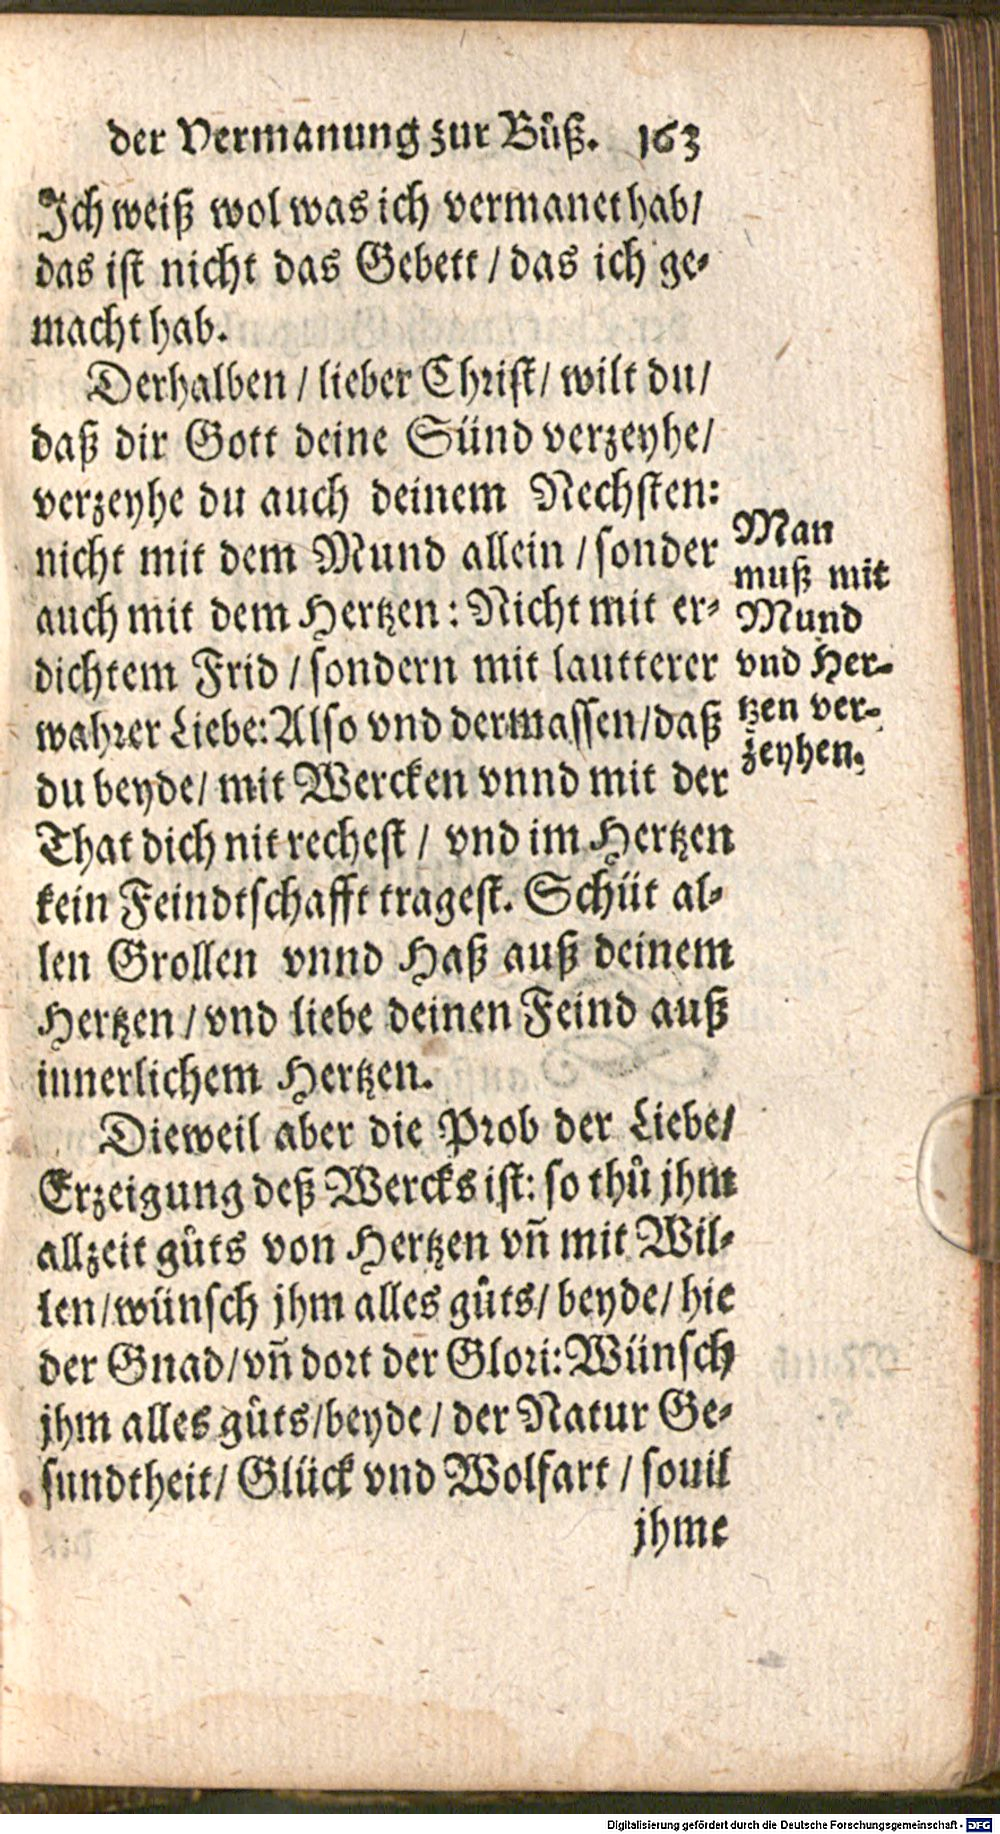 der Vermanung zur Bůß. 163
Ich weiß wol was ich vermanet hab/
das ist nicht das Gebett / das ich ge-
macht hab.
Derhalben / lieber Christ/ wilt du/
daß dir Gott deine Sünd verzeyhe/
verzeyhe du auch deinem Nechsten:
nicht mit dem Mund allein / sonder
auch mit dem Hertzen: Nicht mit er-
dichtem Frid / sondern mit lautterer
wahrer Liebe: Also vnd dermassen/daß
du beyde/ mit Wercken vnnd mit der
That dich nit rechest / vnd im Hertzen
kein Feindtschafft tragest. Schüt al-
len Grollen vnnd Haß auß deinem
Hertzen / vnd liebe deinen Feind auß
innerlichem Hertzen.
Man
muß mit
Mund
vnd Her-
tzen ver-
zeyhen.
Dieweil aber die Prob der Liebe/
Erzeigung deß Wercks ist: so thů jhm
allzeit gůts von Hertzen vñ mit Wil-
len/wünsch jhm alles gůts/ beyde/ hie
der Gnad/vñ dort der Glori: Wünsch
jhm alles gůts/beyde / der Natur Ge-
sundtheit/ Glück vnd Wolfart / souil
jhme
Digitalisierung gefördert durch die Deutsche Forschungsgemeinschaft - DFG